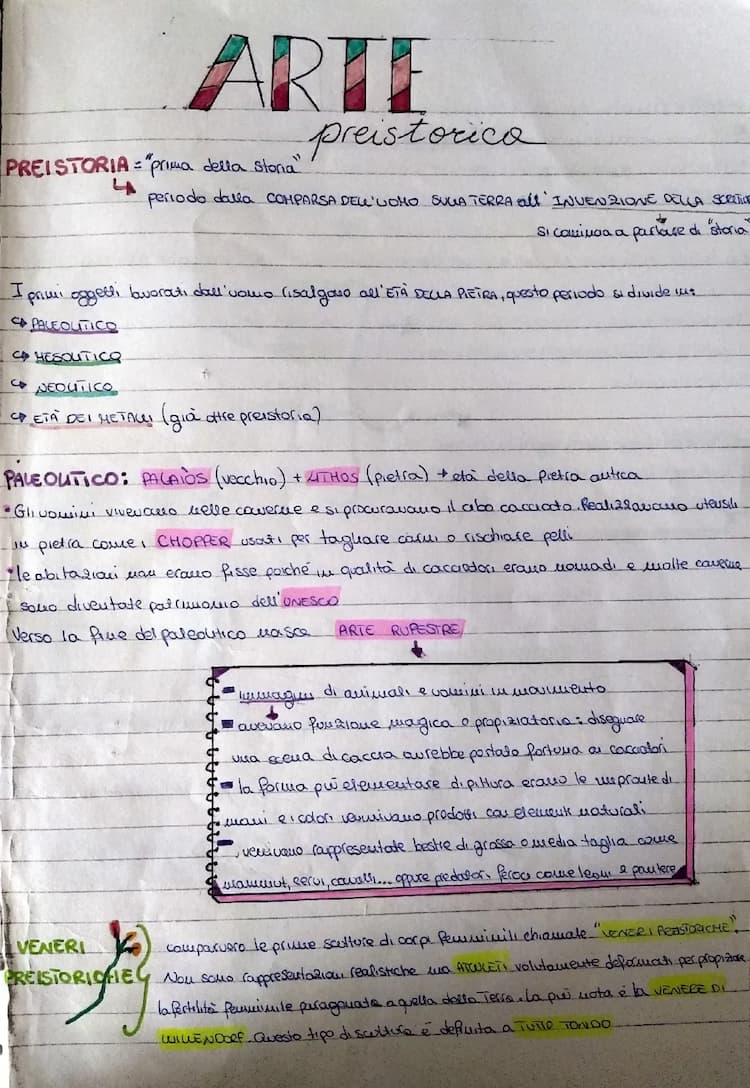 ARTE
preistorica
PREISTORIA = "prima della storia"
periodo dalla COMPARSA DELL'UOMO SULLA TERRA all' INVENZIONE DELLA
si comincia a parlare di "storia"
I primi oggetti lavorati dall'uomo risalgono all'ETÀ DELLA PIETRA, questo periodo si divide in:
↳ PALEOLITICO
↳ MESOLITICO
↳ NEOLITICO
↳ ETÀ DEI METALLI (già oltre preistoria)
PALEOLITICO: PALAIÒS (vecchio) + LITHOS (pietra) → età della pietra antica
• Gli uomini vivevano nelle caverne e si procuravano il cibo cacciando. Realizzavano utensili
in pietra come i CHOPPER usati per tagliare carni o rischiare pelli
• le abitazioni non erano fisse poiché in qualità di cacciatori erano nomadi e molte caverne
sono diventate patrimonio dell'UNESCO
Verso la fine del paleolitico nasce ARTE RUPESTRE
- immagini di animali e uomini in movimento
- avevano funzione magica o propiziatoria: disegnare
una scena di caccia avrebbe portato fortuna ai cacciatori
- la forma più elementare di pittura erano le impronte di
mani e i colori venivano prodotti con elementi naturali
- venivano rappresentate bestie di grossa o media taglia come
mammut, cervi, cavalli... oppure predatori feroci come leoni e pantere
VENERI
PREISTORICHE
comparvero le prime sculture di corpi femminili chiamate "VENERI PREISTORICHE".
Non sono rappresentazioni realistiche ma AMULETI volutamente deformati per propiziare
la fertilità femminile paragonata a quella della Terra. La più nota è la VENERE DI
WILLENDORF. Questo tipo di scultura è definita a TUTTO TONDO